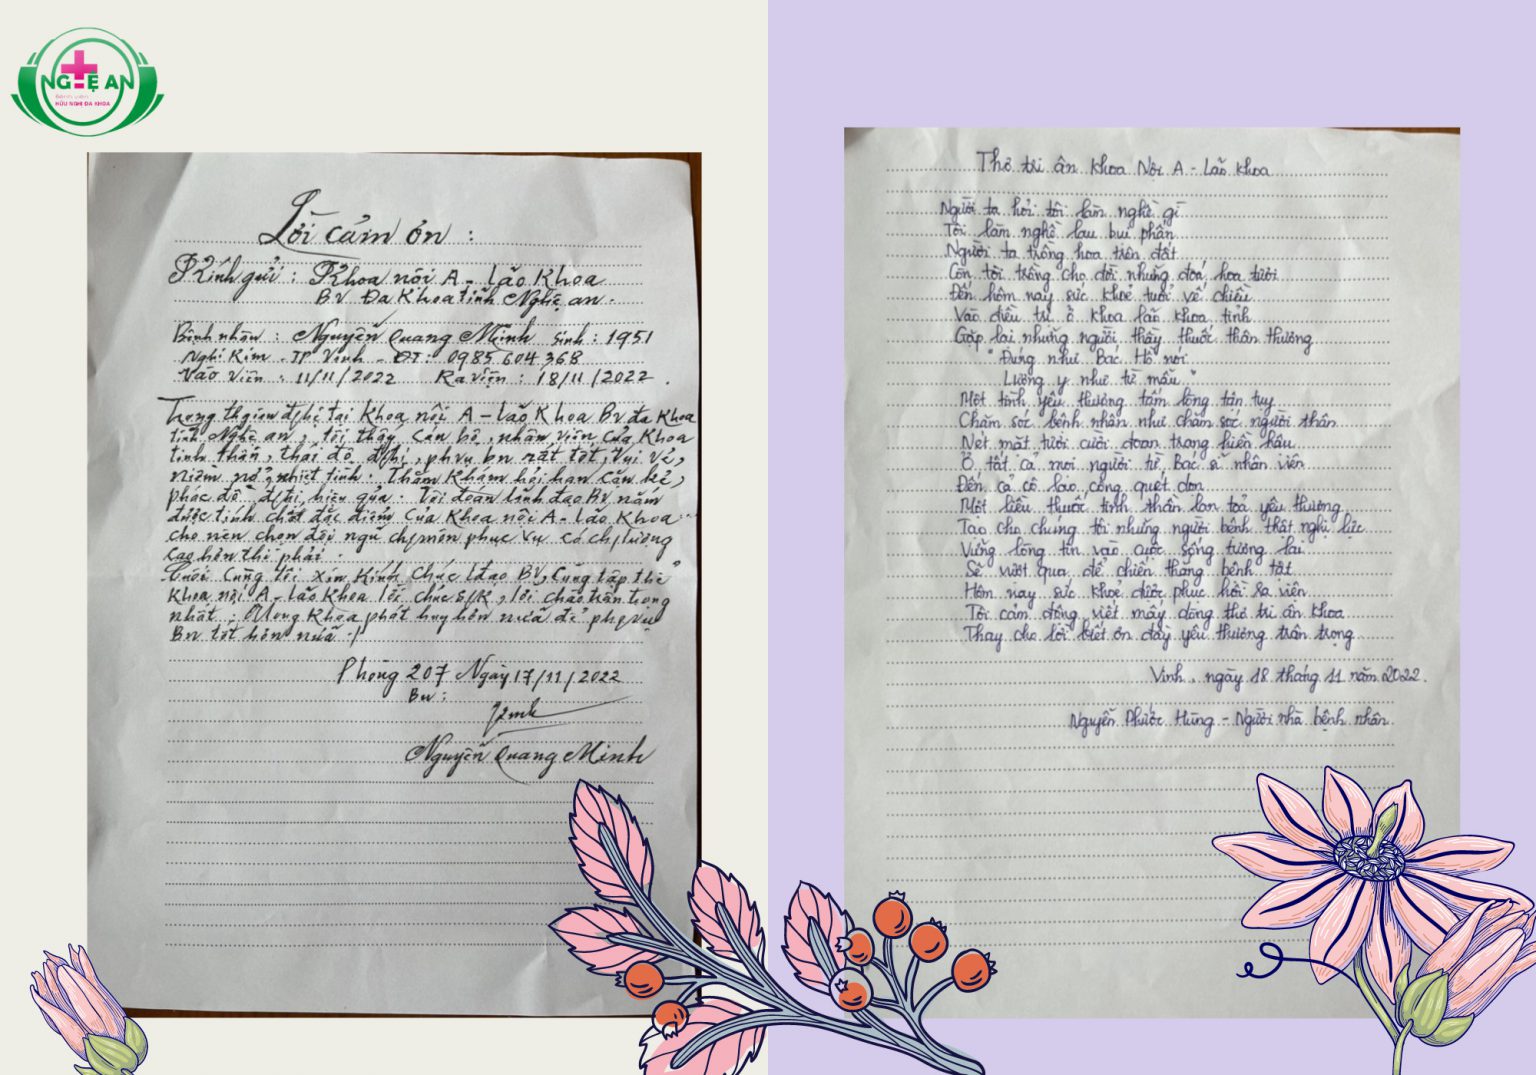 NGHỆ AN
BỆNH VIỆN
HỮU NGHỊ ĐA KHOA
Lời cảm ơn :
Kính gửi : Khoa nội A - Lão Khoa
BV Đa Khoa tỉnh Nghệ an .
Bệnh nhân : Nguyễn Quang Minh Sinh : 1951
Nghi Kim - TP Vinh - ĐT : 0985 604 368
Vào viện : 11/11/2022 Ra viện : 18/11/2022 .
Trong thgian đ/trị tại Khoa nội A - Lão Khoa BV đa Khoa
tỉnh Nghệ an , tôi thấy cán bộ , nhân viên của Khoa
tinh thần , thái độ đ/trị , ph/vụ bn rất tốt , vui vẻ ,
niềm nở , nhiệt tình . Thăm Khám hỏi han cặn kẽ ,
phác đồ đ/trị hiệu quả . Tôi đoán lãnh đạo BV nắm
được tính chất đặc điểm của Khoa nội A - Lão Khoa
cho nên chọn đội ngũ ch/môn phục vụ có ch/lượng
cao hơn thì phải .
Cuối cùng tôi xin Kính chúc l/đạo BV , cùng tập thể
Khoa nội A - Lão Khoa lời chúc s/k , lời chào trân trọng
nhất . Mong Khoa phát huy hơn nữa để ph/vụ
Bn tốt hơn nữa ./
Phòng 207 Ngày 17/11/2022
Bn :
Nguyễn Quang Minh
Thơ tri ân khoa Nội A - Lão khoa
Người ta hỏi tôi làm nghề gì
Tôi làm nghề lau bụi phấn
Người ta trồng hoa trên đất
Còn tôi trồng cho đời những đoá hoa tươi
Đến hôm nay sức khoẻ tuổi về chiều
Vào điều trị ở khoa lão khoa tỉnh
Gặp lại những người thầy thuốc thân thương
"Đúng như Bác Hồ nói
Lương y như từ mẫu"
Một tình yêu thương tấm lòng tận tụy
Chăm sóc bệnh nhân như chăm sóc người thân
Nét mặt tươi cười đoan trang hiền hậu
Ở tất cả mọi người từ Bác sĩ nhân viên
Đến cả cô lao công quét dọn
Một liều thuốc tinh thần lan toả yêu thương
Tạo cho chúng tôi những người bệnh thật nghị lực
Vững lòng tin vào cuộc sống tương lai
Sẽ vượt qua để chiến thắng bệnh tật
Hôm nay sức khoẻ được phục hồi ra viện
Tôi cảm động viết mấy dòng thơ tri ân khoa
Thay cho lời biết ơn đầy yêu thương trân trọng
Vinh , ngày 18 tháng 11 năm 2022 .
Nguyễn Phước Hùng - Người nhà bệnh nhân